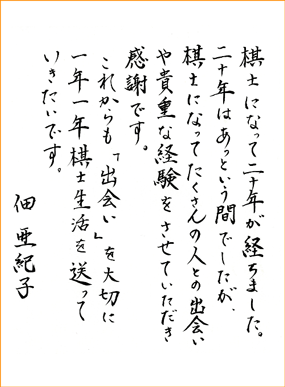 棋士になって二十年が経ちました。
二十年はあっという間でしたが、
棋士になってたくさんの人との出会い
や貴重な経験をさせていただき
感謝です。
これからも「出会い」を大切に
一年一年棋士生活を送って
いきたいです。
佃 亜紀子